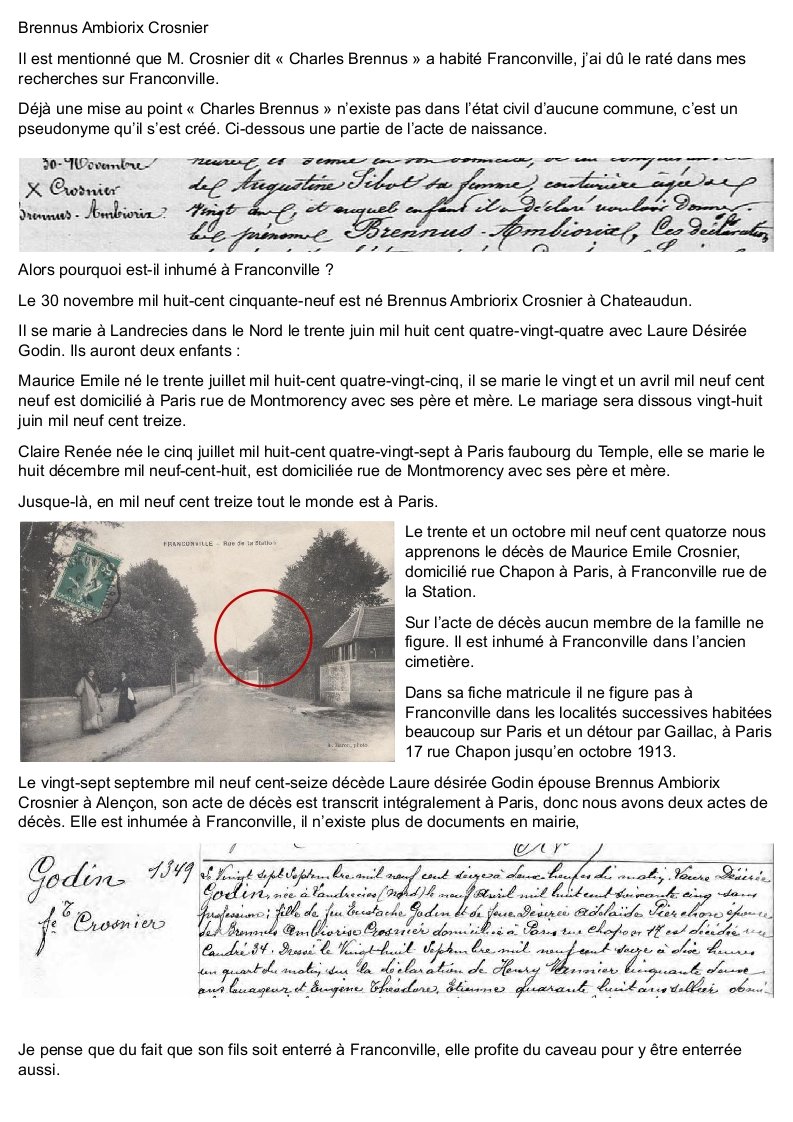 Brennus Ambiorix Crosnier
Il est mentionné que M. Crosnier dit « Charles Brennus » a habité Franconville, j’ai dû le raté dans mes
recherches sur Franconville.
Déjà une mise au point « Charles Brennus » n’existe pas dans l’état civil d’aucune commune, c’est un
pseudonyme qu’il s’est créé. Ci-dessous une partie de l’acte de naissance.
30 - Novembre
X Crosnier
Brennus - Ambiorix.
de Augustine Sibot sa femme, couturière agée de
vingt ans, et auquel enfant il a déclaré vouloir donner
les prénoms Brennus - Ambiorix, Ces déclaration
Alors pourquoi est-il inhumé à Franconville ?
Le 30 novembre mil huit-cent cinquante-neuf est né Brennus Ambriorix Crosnier à Chateaudun.
Il se marie à Landrecies dans le Nord le trente juin mil huit cent quatre-vingt-quatre avec Laure Désirée
Godin. Ils auront deux enfants :
Maurice Emile né le trente juillet mil huit-cent quatre-vingt-cinq, il se marie le vingt et un avril mil neuf cent
neuf est domicilié à Paris rue de Montmorency avec ses père et mère. Le mariage sera dissous vingt-huit
juin mil neuf cent treize.
Claire Renée née le cinq juillet mil huit-cent quatre-vingt-sept à Paris faubourg du Temple, elle se marie le
huit décembre mil neuf-cent-huit, est domiciliée rue de Montmorency avec ses père et mère.
Jusque-là, en mil neuf cent treize tout le monde est à Paris.
FRANCONVILLE – Rue de la Station
Le trente et un octobre mil neuf cent quatorze nous
apprenons le décès de Maurice Emile Crosnier,
domicilié rue Chapon à Paris, à Franconville rue de
la Station.
Sur l’acte de décès aucun membre de la famille ne
figure. Il est inhumé à Franconville dans l’ancien
cimetière.
Dans sa fiche matricule il ne figure pas à
Franconville dans les localités successives habitées
beaucoup sur Paris et un détour par Gaillac, à Paris
17 rue Chapon jusqu’en octobre 1913.
Le vingt-sept septembre mil neuf cent-seize décède Laure désirée Godin épouse Brennus Ambiorix
Crosnier à Alençon, son acte de décès est transcrit intégralement à Paris, donc nous avons deux actes de
décès. Elle est inhumée à Franconville, il n’existe plus de documents en mairie,
Godin 1349
fe Crosnier
Le Vingt sept Septembre mil neuf cent seize à deux heures du matin, Laure Désirée
Godin, née à Landrecies (Nord) le neuf Avril mil huit cent soixante cinq sans
profession; fille de feu Eustache Godin et de feue Désirée Adélaïde épouse
de Brennus Ambiorix Crosnier domicilié à Paris rue chapon 17 est décédée rue
Candré 34. Dressé le Vingt huit Septembre mil neuf cent seize à dix heures
un quart du matin sur la déclaration de Henry cinquante deux
ans et Eugène Théodore, Etienne quarante huit ans sellier
Je pense que du fait que son fils soit enterré à Franconville, elle profite du caveau pour y être enterrée
aussi.